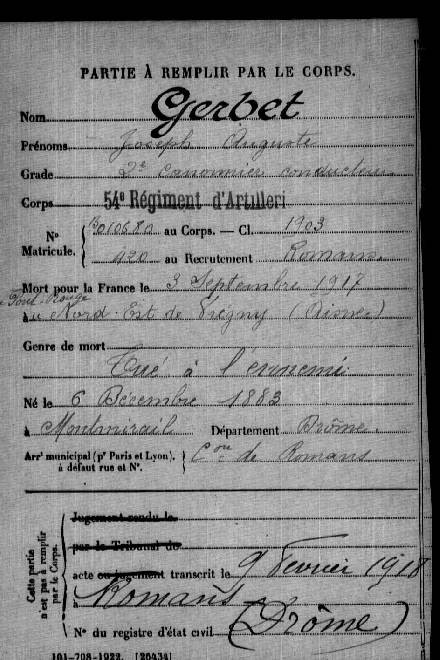 PARTIE À REMPLIR PAR LE CORPS.
Nom Gerbet
Prénoms Joseph Auguste
Grade 2e canonnier conducteur
Corps 54e Régiment d'Artilleri
N° Matricule.
au Corps. — Cl. 1903
420 au Recrutement Romans
Mort pour la France le 3 Septembre 1917
Pont Rouge
au Nord-Est de (Aisne)
Genre de mort
Tué à l'ennemi
Né le 6 Décembre 1883
à Montmirail Département Drôme.
Arrt municipal (pr Paris et Lyon), à défaut rue et N°. Con de Romans
Cette partie n'est pas à remplir par le Corps.
Jugement rendu le
par le Tribunal de
acte ou jugement transcrit le 9 Février 1918
à Romans
N° du registre d'état civil (Drôme)
101-708-1922. [26434]